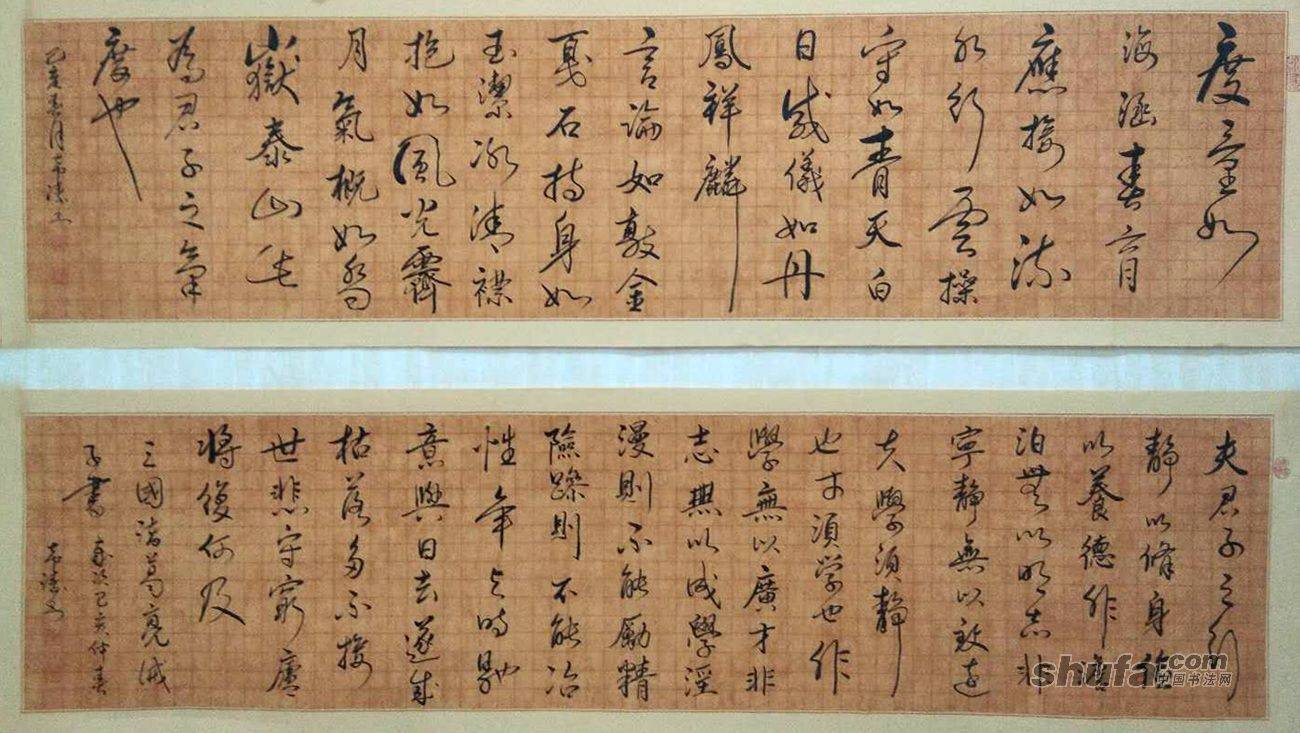 度量如
海涵春育
應接如流
水行雲操
守如青天白
日威儀如丹
鳳祥麟
言論如敲金
戛石持身如
玉潔冰清襟
抱如風光霽
月氣概如喬
嶽泰山此
為君子之氣
度也
己亥春月
夫君子之行
靜以脩身儉
以養德非澹
泊無以明志非
寧靜無以致遠
夫學須靜
也才須学也非
學無以廣才非
志無以成學淫
漫則不能勵精
險躁則不能冶
性年与時馳
意與日去遂成
枯落多不接
世悲守窮廬
將復何及
三國諸葛亮誡
子書 歲次己亥仲春
shufa.com
中国书法网